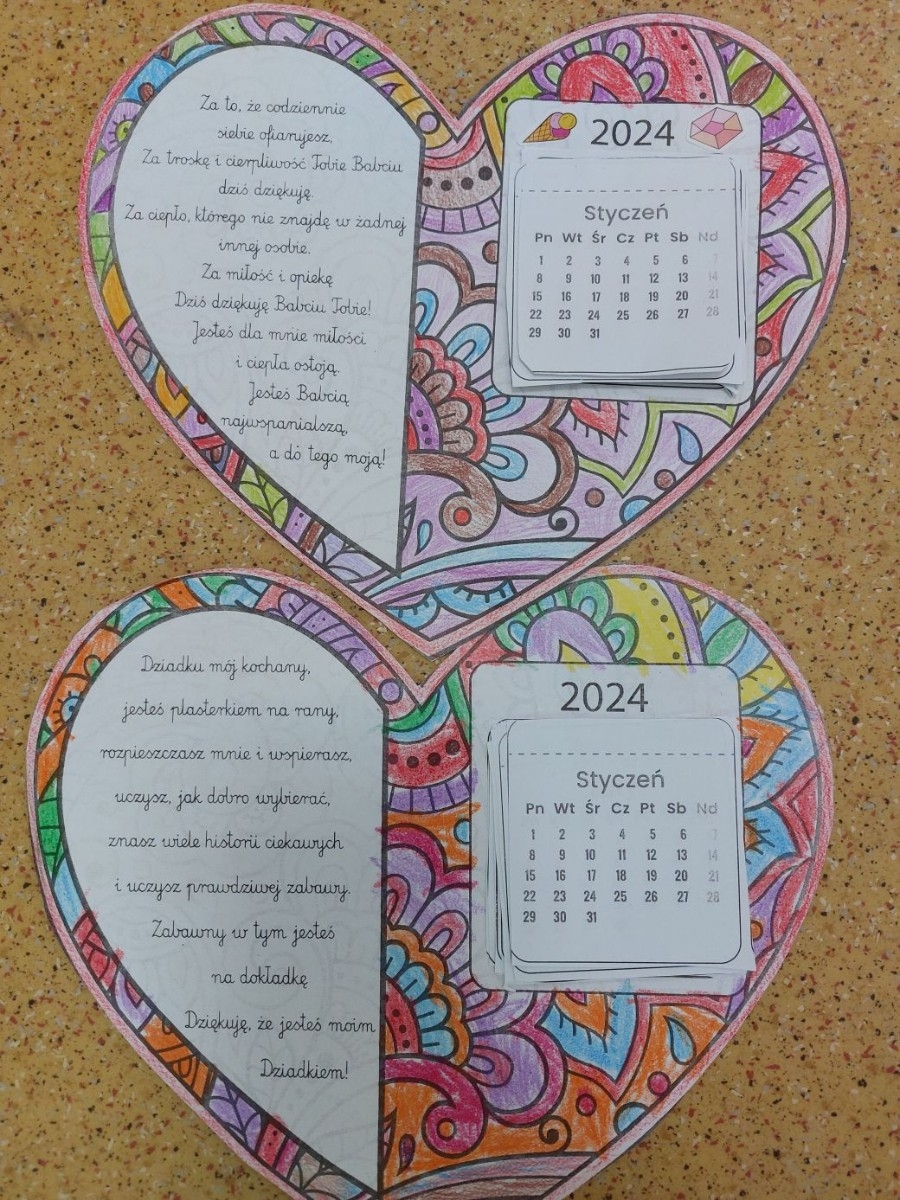 Za to, że codziennie
siebie ofiarujesz,
Za troskę i cierpliwość Tobie Babciu
dziś dziękuję.
Za ciepło, którego nie znajdę w żadnej
innej osobie.
Za miłość i opiekę
Dziś dziękuję Babciu Tobie!
Jesteś dla mnie miłości
i ciepła ostoją.
Jesteś Babcią
najwspanialszą,
a do tego moją!
2024
Styczeń
Pn Wt Śr Cz Pt Sb Nd
1 2 3 4 5 6 7
8 9 10 11 12 13 14
15 16 17 18 19 20 21
22 23 24 25 26 27 28
29 30 31
Dziadku mój kochany,
jesteś plasterkiem na rany,
rozpieszczasz mnie i wspierasz,
uczysz, jak dobro wybierać,
znasz wiele historii ciekawych
i uczysz prawdziwej zabawy.
Zabawny w tym jesteś
na dokładkę
Dziękuję, że jesteś moim
Dziadkiem!
2024
Styczeń
Pn Wt Śr Cz Pt Sb Nd
1 2 3 4 5 6 7
8 9 10 11 12 13 14
15 16 17 18 19 20 21
22 23 24 25 26 27 28
29 30 31